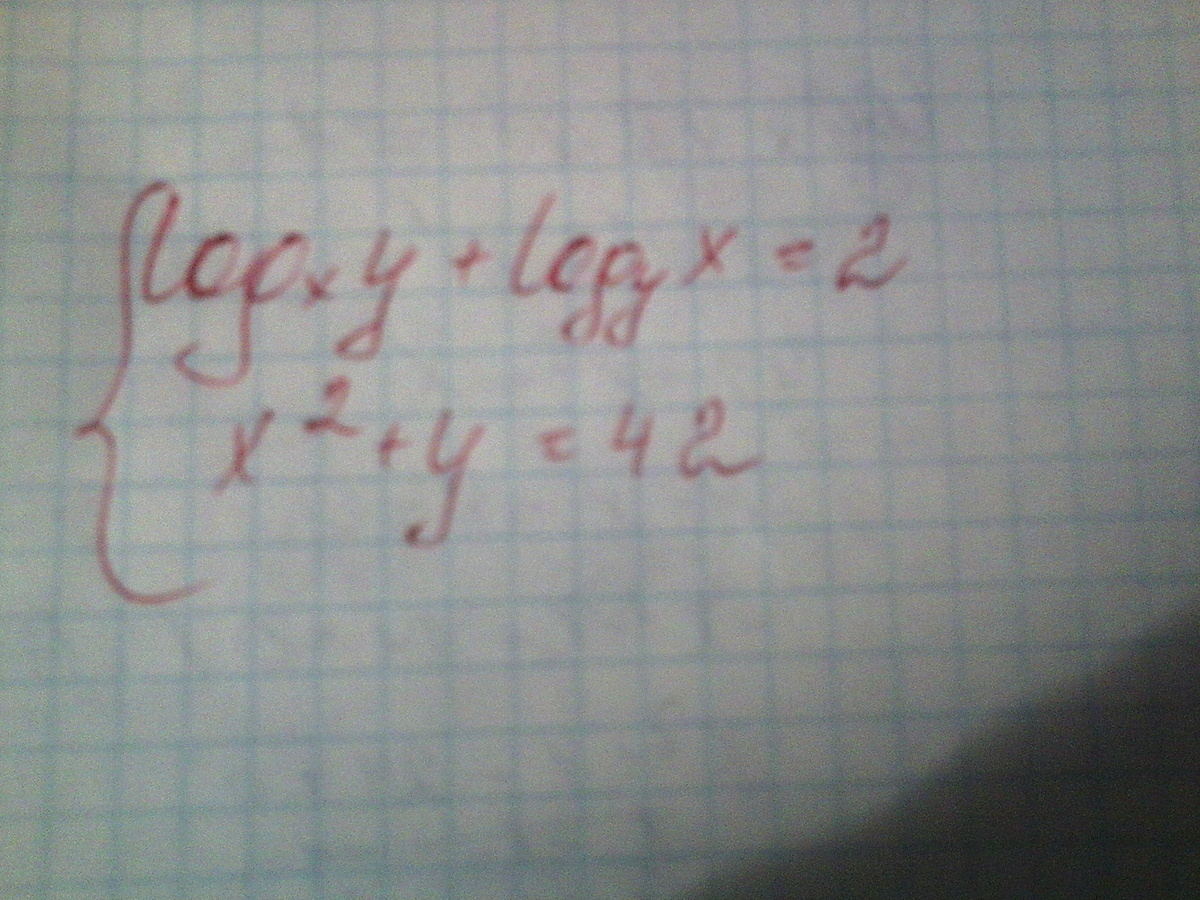 logₓ y + logᵧ x = 2
x² + y = 42